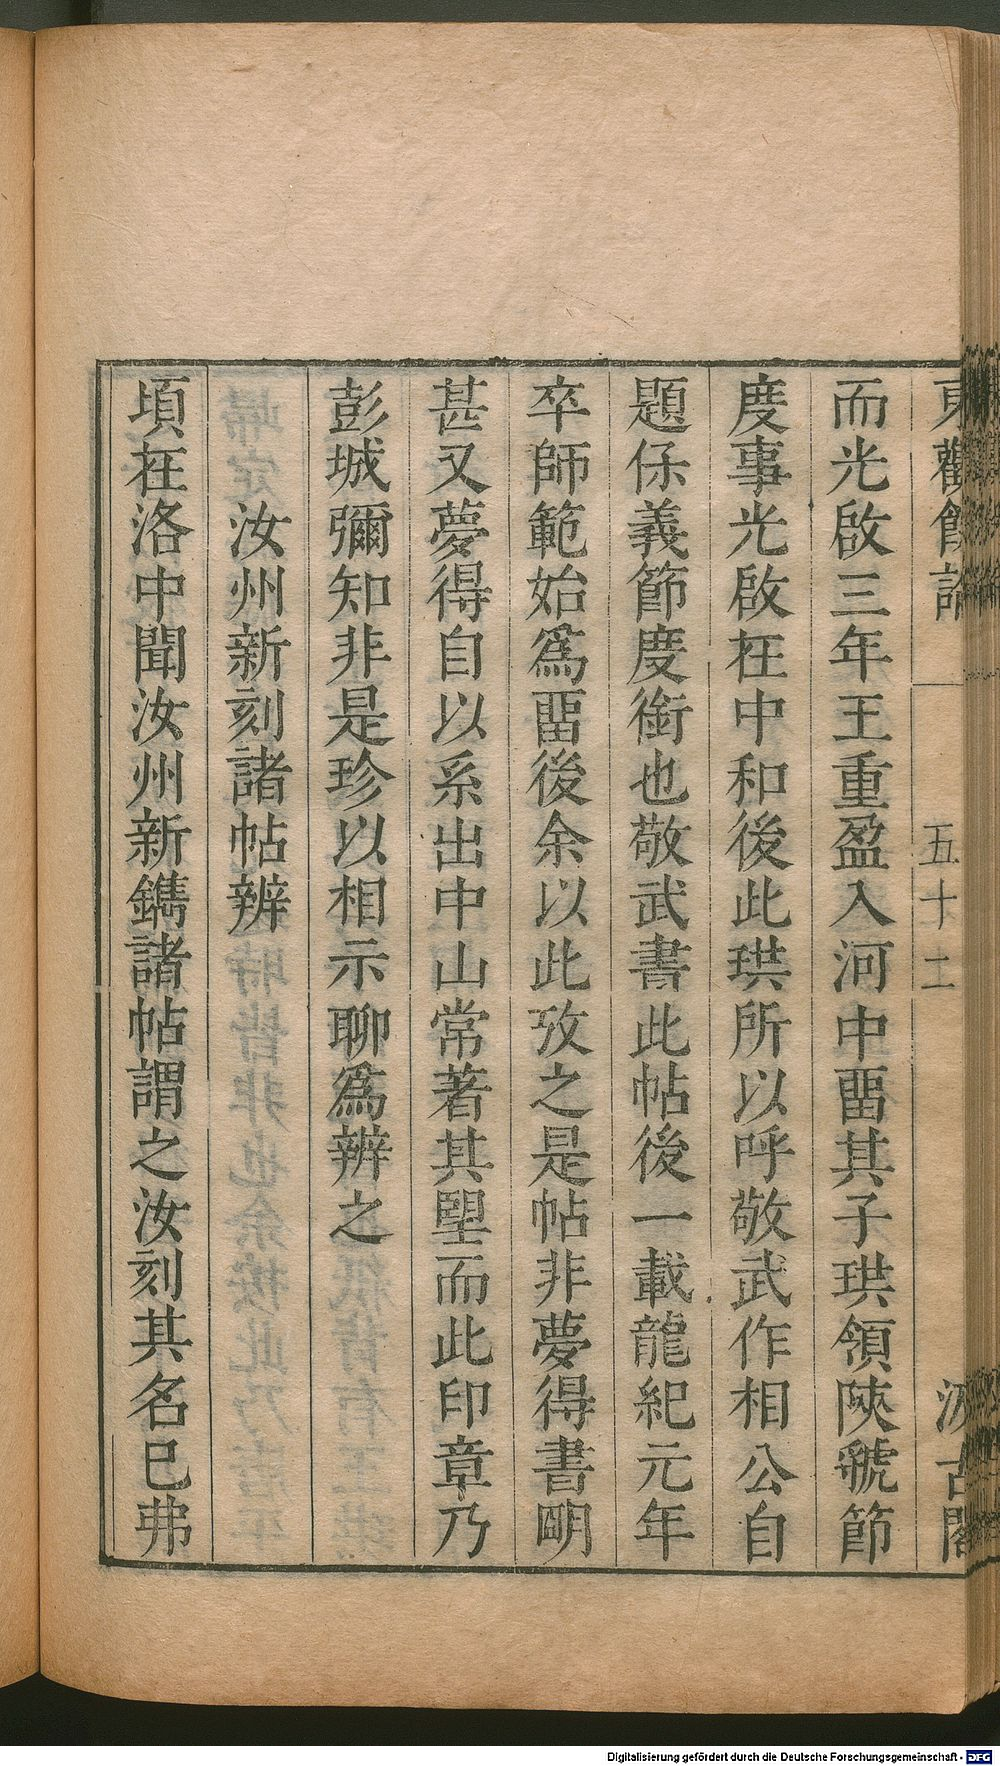 東觀餘論
五十二
汲古閣
而光啟三年王重盈入河中畱其子珙領陝虢節
度事光啟在中和後此珙所以呼敬武作相公自
題保義節度銜也敬武書此帖後一載龍紀元年
卒師範始爲畱後余以此攷之是帖非夢得書明
甚又夢得自以系出中山常著其朢而此印章乃
彭城彌知非是珍以相示聊爲辨之
汝州新刻諸帖辨
頃在洛中聞汝州新鐫諸帖謂之汝刻其名巳弗
Digitalisierung gefördert durch die Deutsche Forschungsgemeinschaft - DFG